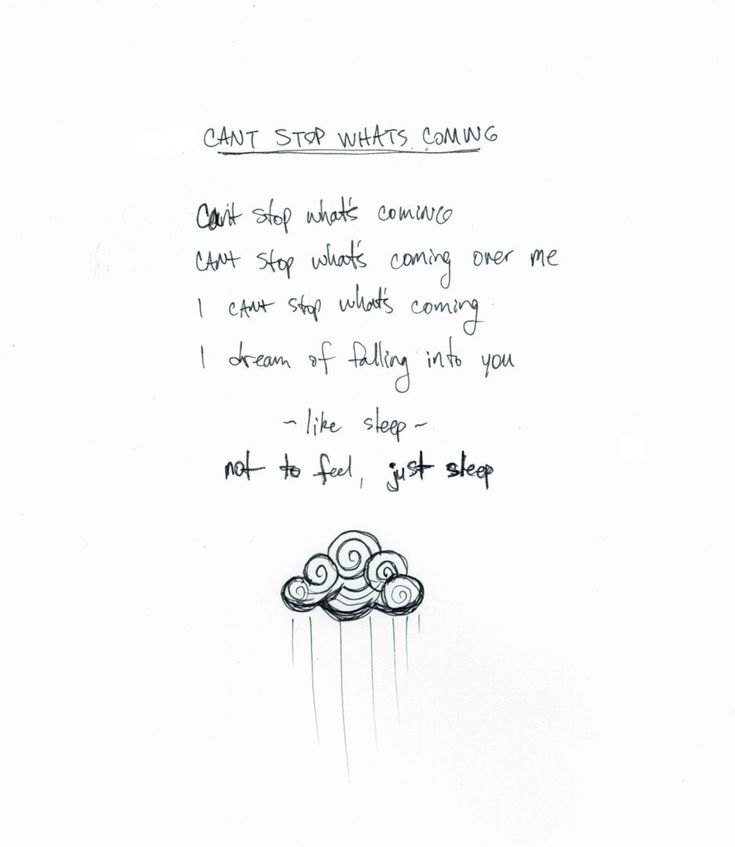 CANT STOP WHATS COMING
Can't stop what's coming
CANT stop what's coming over me
I CANT stop what's coming
I dream of falling into you
~ like sleep ~
not to feel, just sleep